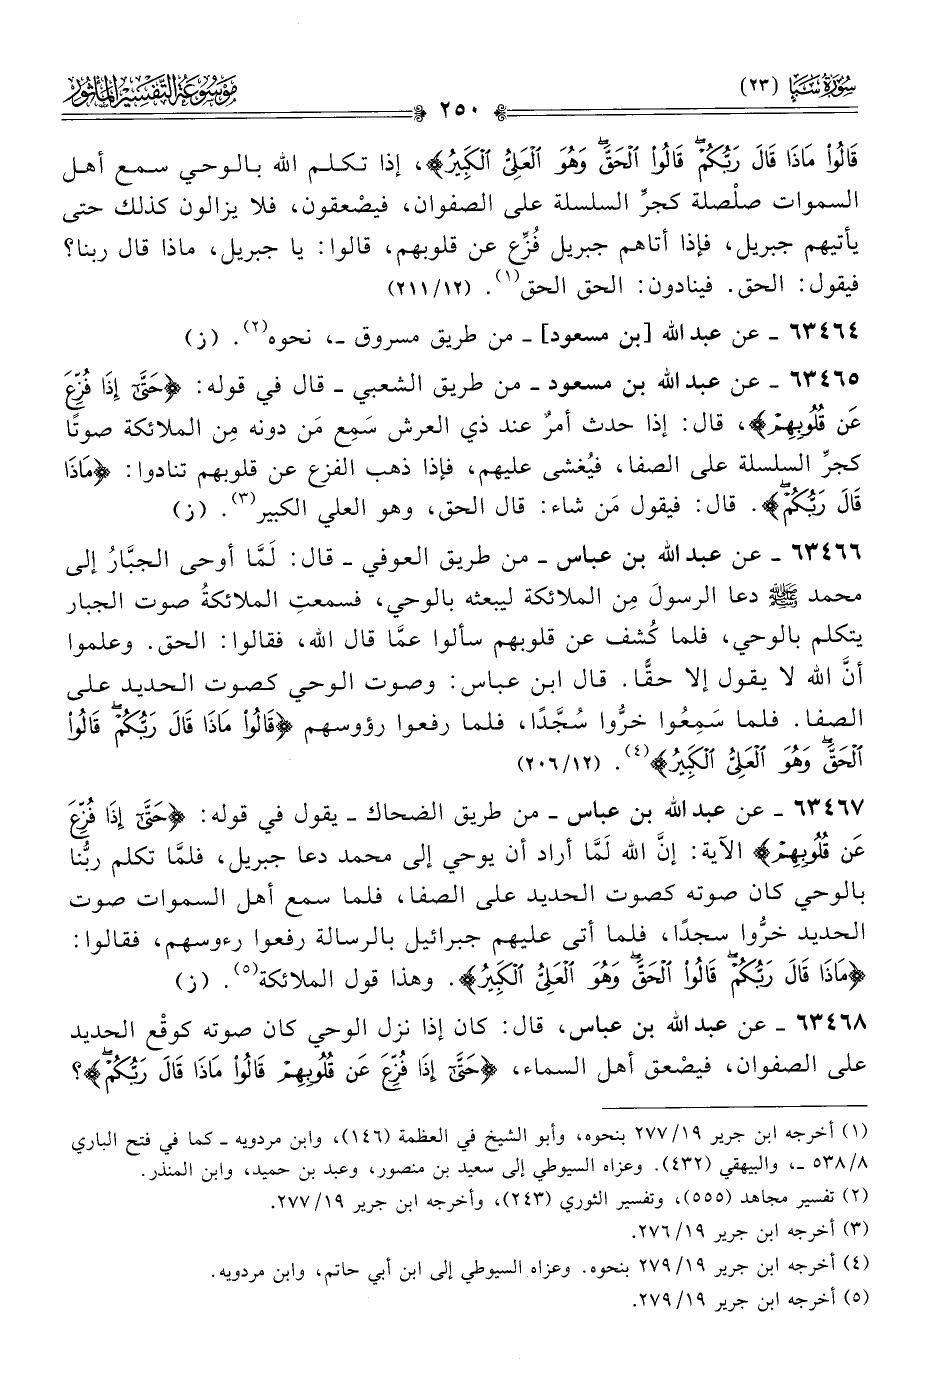 سُورَةُ سَبَإٍ (٢٣)
٢٥٠
مَوْسُوعَةُ التَّفْسِيرِ المَأْثُورِ
قَالُوا۟ مَاذَا قَالَ رَبُّكُمْۖ قَالُوا۟ ٱلْحَقَّۖ وَهُوَ ٱلْعَلِىُّ ٱلْكَبِيرُ﴾، إذا تكلم الله بالوحي سمع أهل
السموات صلْصلة كجرِّ السلسلة على الصفوان، فيصْعقون، فلا يزالون كذلك حتى
يأتيهم جبريل، فإذا أتاهم جبريل فُزِّع عن قلوبهم، قالوا: يا جبريل، ماذا قال ربنا؟
فيقول: الحق. فينادون: الحق الحق(١). (٢١١/١٢)
٦٣٤٦٤ - عن عبد الله [بن مسعود] - من طريق مسروق -، نحوه(٢). (ز)
٦٣٤٦٥ - عن عبد الله بن مسعود - من طريق الشعبي - قال في قوله: ﴿حَتَّىٰٓ إِذَا فُزِّعَ
عَن قُلُوبِهِمْ﴾، قال: إذا حدث أمرٌ عند ذي العرش سَمِع مَن دونه مِن الملائكة صوتًا
كجرِّ السلسلة على الصفا، فيُغشى عليهم، فإذا ذهب الفزع عن قلوبهم تنادوا: ﴿مَاذَا
قَالَ رَبُّكُمْۖ﴾. قال: فيقول مَن شاء: قال الحق، وهو العلي الكبير(٣). (ز)
٦٣٤٦٦ - عن عبد الله بن عباس - من طريق العوفي - قال: لَمَّا أوحى الجبَّارُ إلى
محمد ﷺ دعا الرسولَ مِن الملائكة ليبعثه بالوحي، فسمعتِ الملائكةُ صوت الجبار
يتكلم بالوحي، فلما كُشف عن قلوبهم سألوا عمَّا قال الله، فقالوا: الحق. وعلموا
أنَّ الله لا يقول إلا حقًّا. قال ابن عباس: وصوت الوحي كصوت الحديد على
الصفا. فلما سَمِعُوا خرُّوا سُجَّدًا، فلما رفعوا رؤوسهم ﴿قَالُوا۟ مَاذَا قَالَ رَبُّكُمْۖ قَالُوا۟
ٱلْحَقَّۖ وَهُوَ ٱلْعَلِىُّ ٱلْكَبِيرُ﴾(٤). (٢٠٦/١٢)
٦٣٤٦٧ - عن عبد الله بن عباس - من طريق الضحاك - يقول في قوله: ﴿حَتَّىٰٓ إِذَا فُزِّعَ
عَن قُلُوبِهِمْ﴾ الآية: إنَّ الله لَمَّا أراد أن يوحي إلى محمد دعا جبريل، فلمَّا تكلم ربُّنا
بالوحي كان صوته كصوت الحديد على الصفا، فلما سمع أهل السموات صوت
الحديد خرُّوا سجدًا، فلما أتى عليهم جبرائيل بالرسالة رفعوا رءوسهم، فقالوا:
﴿مَاذَا قَالَ رَبُّكُمْۖ قَالُوا۟ ٱلْحَقَّۖ وَهُوَ ٱلْعَلِىُّ ٱلْكَبِيرُ﴾. وهذا قول الملائكة(٥). (ز)
٦٣٤٦٨ - عن عبد الله بن عباس، قال: كان إذا نزل الوحي كان صوته كوقْع الحديد
على الصفوان، فيصْعق أهل السماء، ﴿حَتَّىٰٓ إِذَا فُزِّعَ عَن قُلُوبِهِمْ قَالُوا۟ مَاذَا قَالَ رَبُّكُمْۖ﴾؟
(١) أخرجه ابن جرير ٢٧٧/١٩ بنحوه، وأبو الشيخ في العظمة (١٤٦)، وابن مردويه - كما في فتح الباري
٥٣٨/٨ -، والبيهقي (٤٣٢). وعزاه السيوطي إلى سعيد بن منصور، وعبد بن حميد، وابن المنذر.
(٢) تفسير مجاهد (٥٥٥)، وتفسير الثوري (٢٤٣)، وأخرجه ابن جرير ٢٧٧/١٩.
(٣) أخرجه ابن جرير ٢٧٦/١٩.
(٤) أخرجه ابن جرير ٢٧٩/١٩ بنحوه. وعزاه السيوطي إلى ابن أبي حاتم، وابن مردويه.
(٥) أخرجه ابن جرير ٢٧٩/١٩.